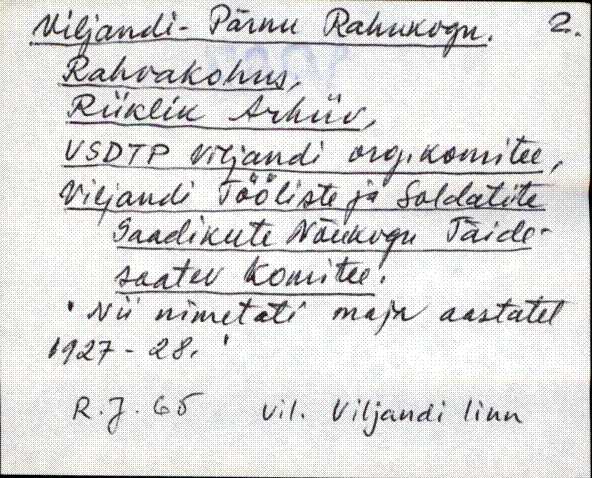 Viljandi-Pärnu Rahukogu. 2.
Rahvakohus,
Riiklik Arhiiv,
VSDTP Viljandi org.komitee,
Viljandi Tööliste ja Soldatite
Saadikute Nõukogu Täide-
saatev Komitee.
"Nii nimetati maja aastatel
1927-28."
R.J. 65 Vil. Viljandi linn